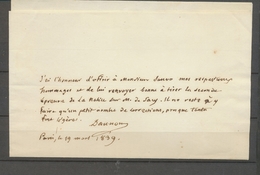 J'ai l'honneur d'offrir à Monsieur mes respectueux
hommages et de lui renvoyer bonne à tirer la seconde
épreuve de la Notice sur M. de Sacy. Il ne reste à y
faire qu'un petit nombre de corrections,
fort légère.
Daunou
Paris, le 19 mars 1839.